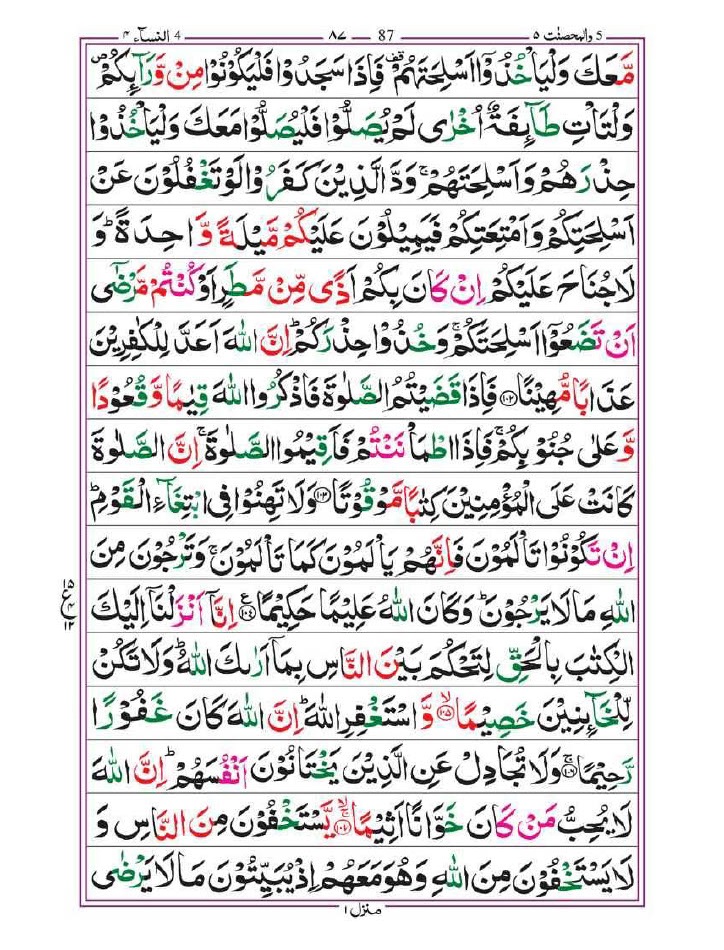 5 والمحصنت ۵ — 87 — ۸۷ — 4 النسآء ۴
مَّعَكَ وَلْيَاْخُذُوْۤا اَسْلِحَتَهُمْ ۫ فَاِذَا سَجَدُوْا فَلْيَكُوْنُوْا مِنْ وَّرَآىِٕكُمْ ۪
وَلْتَاْتِ طَآىِٕفَةٌ اُخْرٰى لَمْ يُصَلُّوْا فَلْيُصَلُّوْا مَعَكَ وَلْيَاْخُذُوْا
حِذْرَهُمْ وَاَسْلِحَتَهُمْ ۚ وَدَّ الَّذِيْنَ كَفَرُوْا لَوْ تَغْفُلُوْنَ عَنْ
اَسْلِحَتِكُمْ وَاَمْتِعَتِكُمْ فَيَمِيْلُوْنَ عَلَيْكُمْ مَّيْلَةً وَّاحِدَةً ؕ وَ
لَا جُنَاحَ عَلَيْكُمْ اِنْ كَانَ بِكُمْ اَذًى مِّنْ مَّطَرٍ اَوْ كُنْتُمْ مَّرْضٰۤى
اَنْ تَضَعُوْۤا اَسْلِحَتَكُمْ ۚ وَخُذُوْا حِذْرَكُمْ ؕ اِنَّ اللّٰهَ اَعَدَّ لِلْكٰفِرِيْنَ
عَذَابًا مُّهِيْنًا ۝۱۰۲ فَاِذَا قَضَيْتُمُ الصَّلٰوةَ فَاذْكُرُوا اللّٰهَ قِيٰمًا وَّقُعُوْدًا
وَّعَلٰى جُنُوْبِكُمْ ۚ فَاِذَا اطْمَاْنَنْتُمْ فَاَقِيْمُوا الصَّلٰوةَ ۚ اِنَّ الصَّلٰوةَ
كَانَتْ عَلَى الْمُؤْمِنِيْنَ كِتٰبًا مَّوْقُوْتًا ۝۱۰۳ وَلَا تَهِنُوْا فِى ابْتِغَآءِ الْقَوْمِ ؕ
اِنْ تَكُوْنُوْا تَاْلَمُوْنَ فَاِنَّهُمْ يَاْلَمُوْنَ كَمَا تَاْلَمُوْنَ ۚ وَتَرْجُوْنَ مِنَ
اللّٰهِ مَا لَا يَرْجُوْنَ ؕ وَكَانَ اللّٰهُ عَلِيْمًا حَكِيْمًا ۝۱۰۴ ع اِنَّاۤ اَنْزَلْنَاۤ اِلَيْكَ
الْكِتٰبَ بِالْحَقِّ لِتَحْكُمَ بَيْنَ النَّاسِ بِمَاۤ اَرٰىكَ اللّٰهُ ؕ وَلَا تَكُنْ
لِّلْخَآىِٕنِيْنَ خَصِيْمًا ۝۱۰۵ ۙ وَّاسْتَغْفِرِ اللّٰهَ ؕ اِنَّ اللّٰهَ كَانَ غَفُوْرًا
رَّحِيْمًا ۝۱۰۶ ۚ وَلَا تُجَادِلْ عَنِ الَّذِيْنَ يَخْتَانُوْنَ اَنْفُسَهُمْ ؕ اِنَّ اللّٰهَ
لَا يُحِبُّ مَنْ كَانَ خَوَّانًا اَثِيْمًا ۝۱۰۷ ۙۚ يَّسْتَخْفُوْنَ مِنَ النَّاسِ وَ
لَا يَسْتَخْفُوْنَ مِنَ اللّٰهِ وَهُوَ مَعَهُمْ اِذْ يُبَيِّتُوْنَ مَا لَا يَرْضٰى
منزل ۱